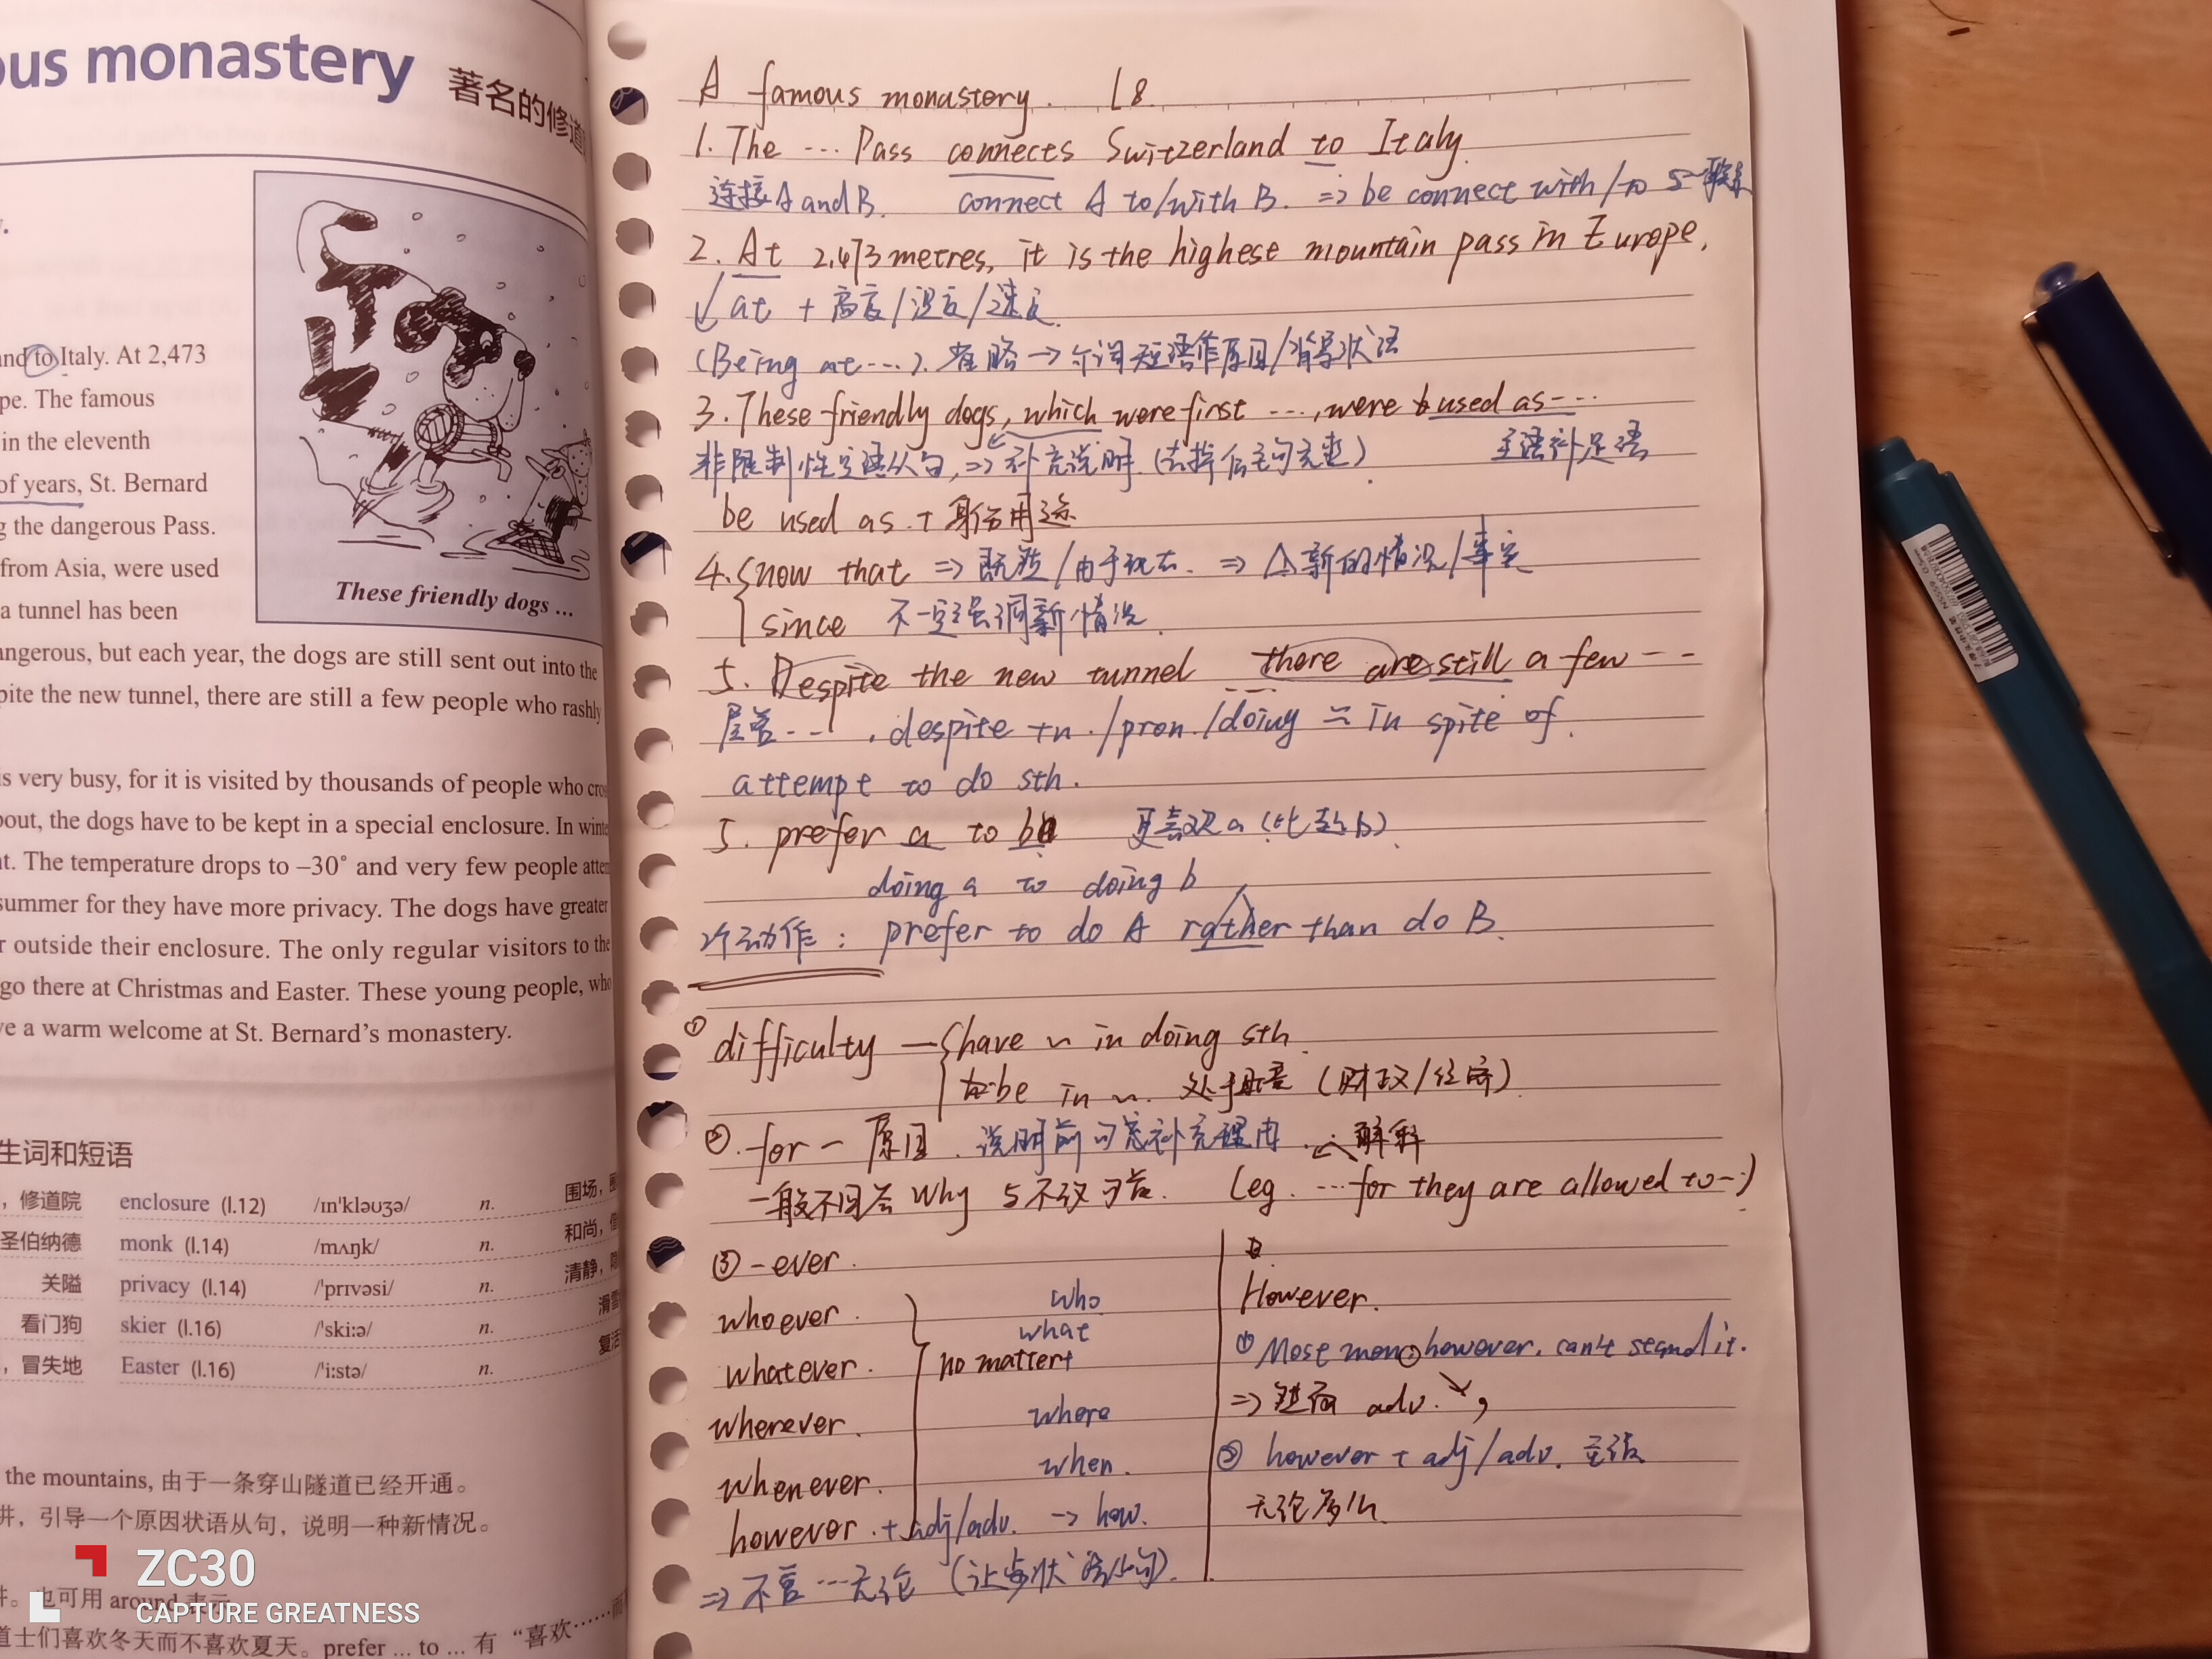 ous monastery 著名的修道
y.
and to Italy. At 2,473
pe. The famous
in the eleventh
of years, St. Bernard
g the dangerous Pass.
from Asia, were used
a tunnel has been
angerous, but each year, the dogs are still sent out into the
pite the new tunnel, there are still a few people who rashly
These friendly dogs ...
is very busy, for it is visited by thousands of people who cro
bout, the dogs have to be kept in a special enclosure. In winte
nt. The temperature drops to –30° and very few people atte
summer for they have more privacy. The dogs have greater
r outside their enclosure. The only regular visitors to the
go there at Christmas and Easter. These young people, who
ve a warm welcome at St. Bernard's monastery.
生词和短语
，修道院 enclosure (l.12) /ɪnˈkləʊʒə/ n. 围场，
圣伯纳德 monk (l.14) /mʌŋk/ n. 和尚，
关隘 privacy (l.14) /ˈprɪvəsi/ n. 清静，
看门狗 skier (l.16) /ˈski:ə/ n. 滑雪
，冒失地 Easter (l.16) /ˈi:stə/ n. 复活
the mountains, 由于一条穿山隧道已经开通。
讲，引导一个原因状语从句，说明一种新情况。
讲。也可用 around 表示
道士们喜欢冬天而不喜欢夏天。prefer ... to ... 有“喜欢……而
ZC30
CAPTURE GREATNESS
A famous monastory. L8.
1. The ... Pass connects Switzerland to Italy.
连接A and B. connect A to/with B. ⇒ be connect with/to 与~联系
2. At 2,473 metres, it is the highest mountain pass in Europe.
at + 高度/温度/速度
(Being at ...). 省略 → 介词短语作原因/背景状语
3. These friendly dogs, which were first ..., were used as ...
非限制性定语从句, ⇒ 补充说明. (去掉后主句完整) 主语补足语
be used as + 身份用途
4. now that ⇒ 既然/由于现在. ⇒ △新的情况/事实
since 不一定强调新情况.
5. Despite the new tunnel ... there are still a few ...
尽管 ... . despite +n./pron./doing = in spite of.
attempt to do sth.
5. prefer a to b 更喜欢a (比起b)
doing a to doing b
2个动作: prefer to do A rather than do B.
① difficulty — have ~ in doing sth.
be in ~. 处于困境 (财政/经济)
②. for — 原因. 说明前句态补充理由. 解释
一般不回答 Why 与不放句首. (eg. ...for they are allowed to ...)
③ -ever.
whoever. who
whatever. no matter what
wherever. where
whenever. when.
however. + adj/adv. → how.
⇒ 不管...无论 (让步状语从句).
However.
① Most men, however, can't stand it.
⇒ 然而 adv. ,
② however + adj/adv. 主谓
无论多么